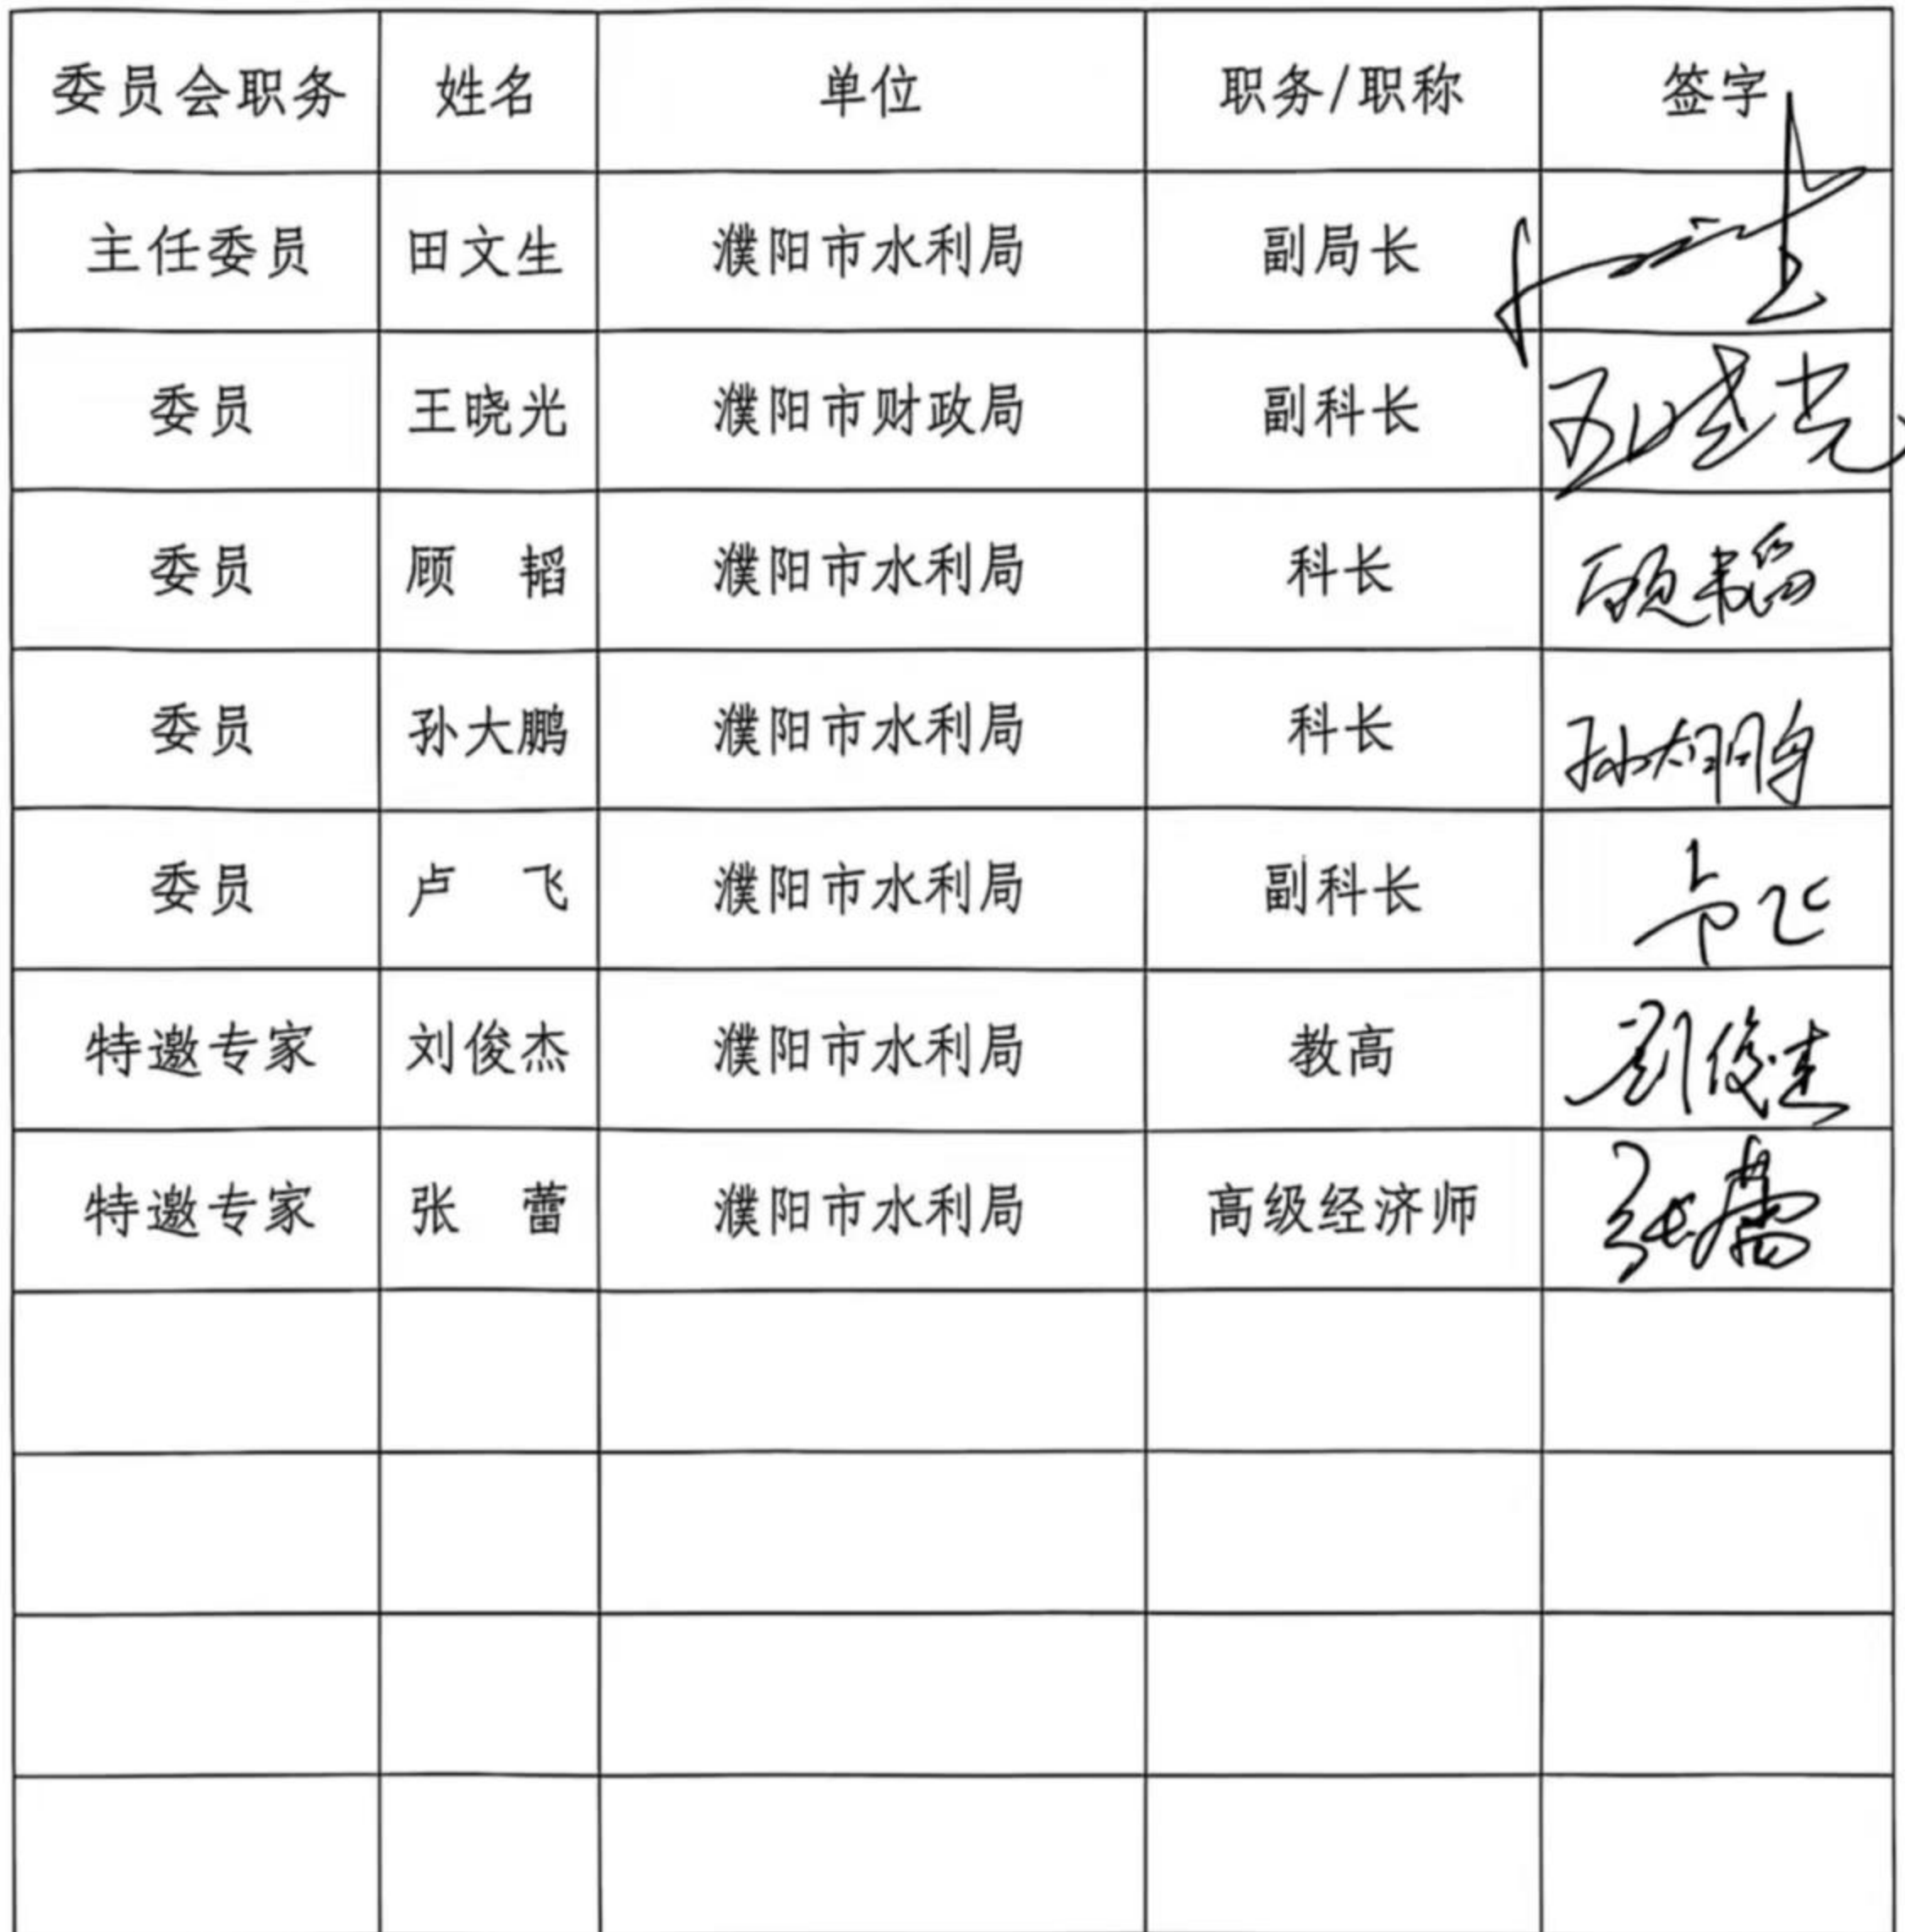 委员会职务 姓名 单位 职务/职称 签字
主任委员 田文生 濮阳市水利局 副局长
委员 王晓光 濮阳市财政局 副科长 王晓光
委员 顾 韬 濮阳市水利局 科长 顾韬
委员 孙大鹏 濮阳市水利局 科长 孙大鹏
委员 卢 飞 濮阳市水利局 副科长 卢飞
特邀专家 刘俊杰 濮阳市水利局 教高 刘俊杰
特邀专家 张 蕾 濮阳市水利局 高级经济师 张蕾